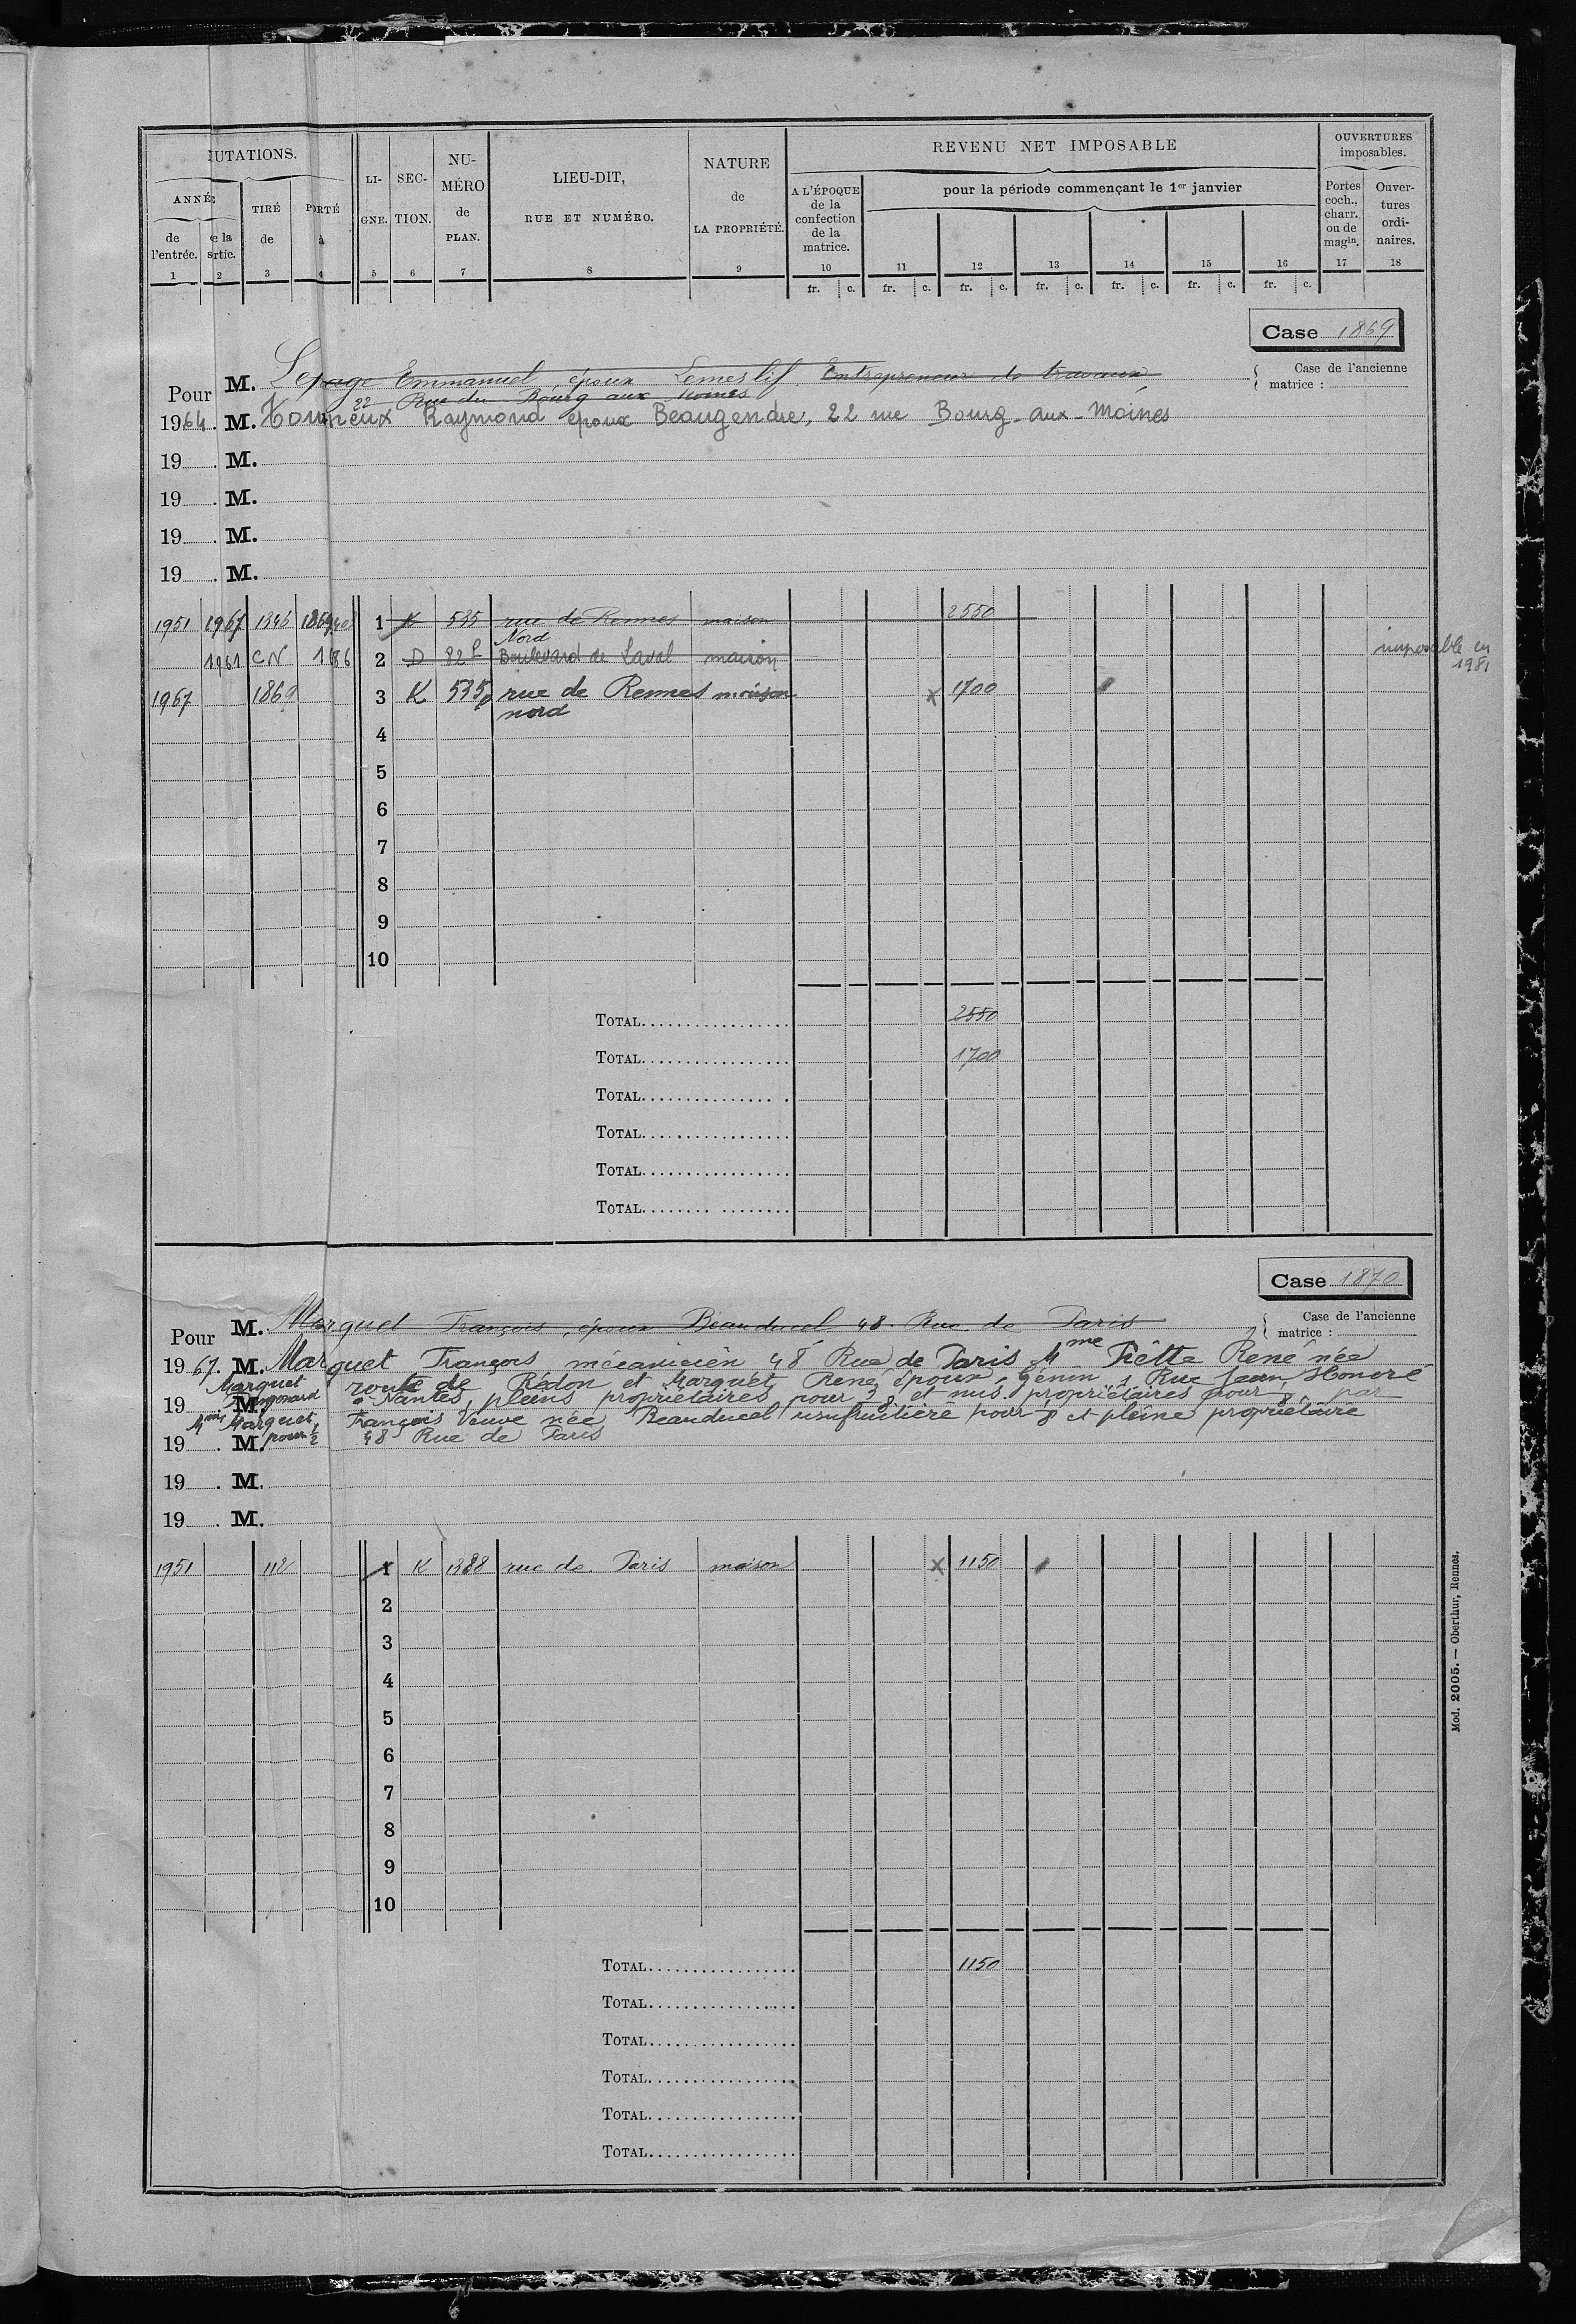 MUTATIONS.
ANNÉE
de l'entrée.
de la sortie.
TIRÉ de
PORTÉ à
LIGNE.
SECTION.
NUMÉRO de PLAN.
LIEU-DIT, RUE ET NUMÉRO.
NATURE de LA PROPRIÉTÉ.
REVENU NET IMPOSABLE
A L'ÉPOQUE de la confection de la matrice.
pour la période commençant le 1er janvier
OUVERTURES imposables.
Portes coch., charr. ou de magin.
Ouvertures ordinaires.
1 2 3 4 5 6 7 8 9 10 11 12 13 14 15 16 17 18
fr. c. fr. c. fr. c. fr. c. fr. c. fr. c. fr. c.
Case 1869
Case de l'ancienne matrice :
Pour M. Lepage Emmanuel, époux Lemeslif Entrepreneur de travaux
22 Rue du Bourg aux Moines
1964. M. Raymond époux Beaugendre, 22 rue Bourg-aux-Moines
19 . M.
19 . M.
19 . M.
19 . M.
1951 1967 1 K 535 rue de Rennes maison 2550
Nord
1961 CN 2 D 82 Boulevard de Laval maison imposable en
1981
1967 1869 3 K 535p rue de Rennes maison x 1700
nord
4
5
6
7
8
9
10
TOTAL 2550
TOTAL 1700
TOTAL
TOTAL
TOTAL
TOTAL
Case 1870
Case de l'ancienne matrice :
Pour M. Marquet François, époux Beauducel 48 Rue de Paris
1967. M. Marquet François mécanicien 48 Rue de Paris Mme René née
Marquet route de Redon et Marquet René époux Génin 1 Rue Jean Honoré
19 . M. Nantes, pleins propriétaires pour et nus propriétaires pour par
Mme Marquet François Veuve née Beauducel usufruitière pour et pleine propriétaire
19 . M. pour 1/2 48 Rue de Paris
19 . M.
19 . M.
1951 112 1 K 1388 rue de Paris maison x 1150
2
3
4
5
6
7
8
9
10
TOTAL 1150
TOTAL
TOTAL
TOTAL
TOTAL
TOTAL
Mod. 2005. — Oberthur, Rennes.